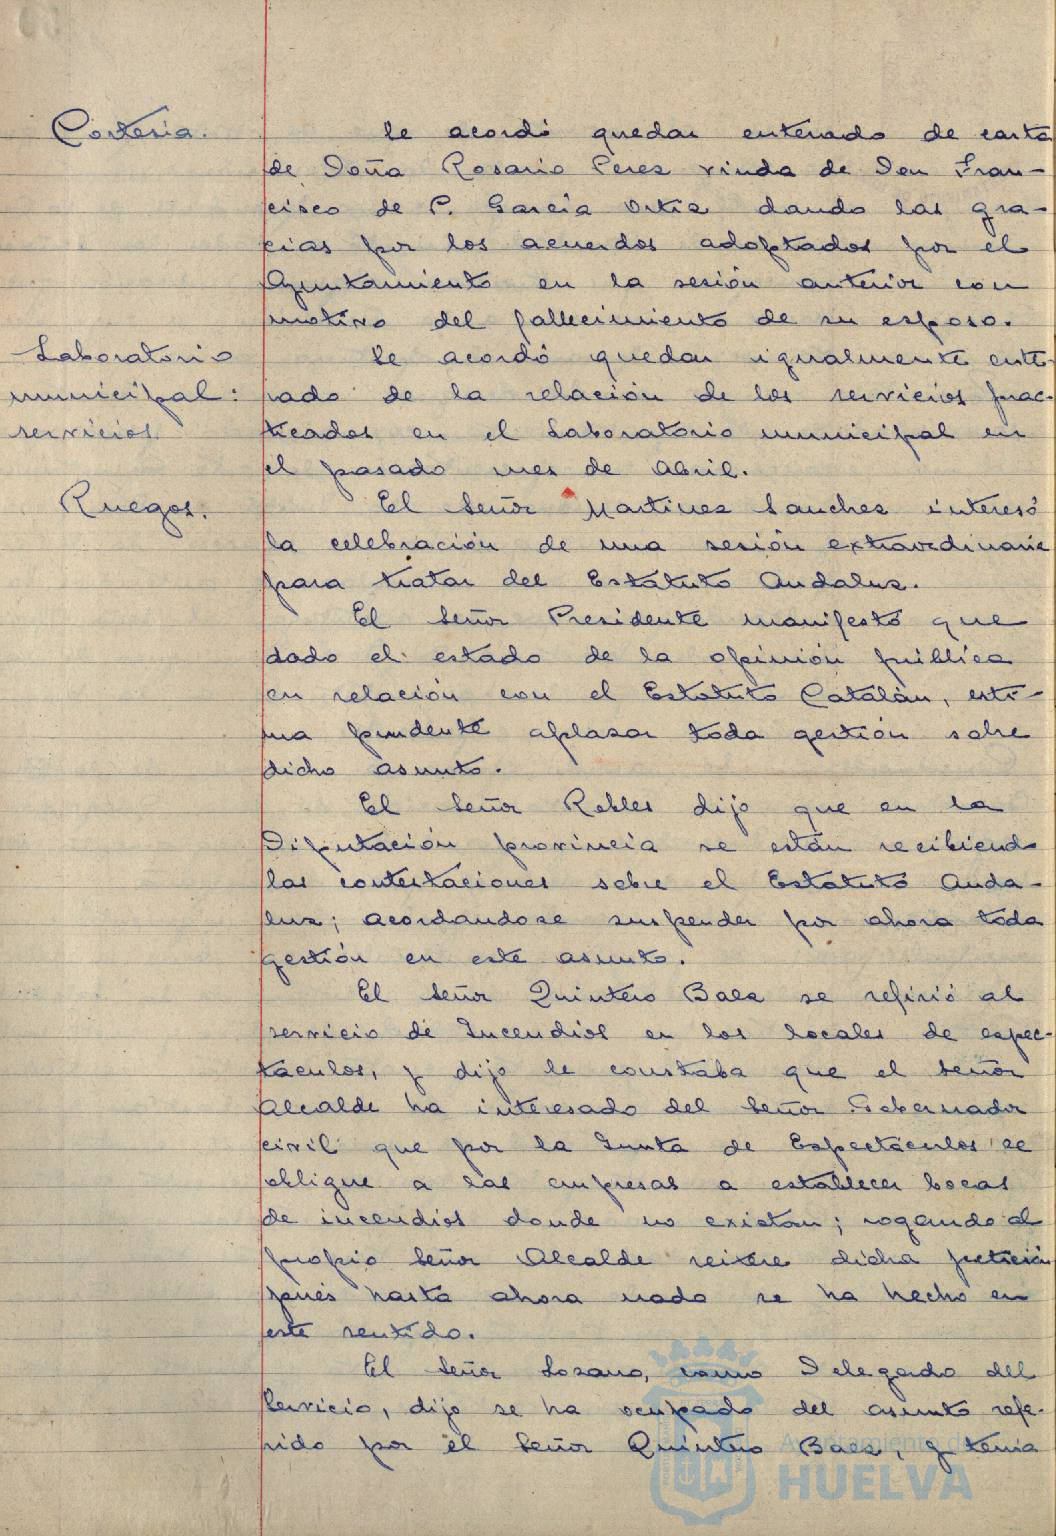 Cortesia.
Se acordó quedar enterado de carta
de Doña Rosario Perez viuda de Don Fran-
cisco de P. García Ortiz dando las gra-
cias por los acuerdos adoptados por el
Ayuntamiento en la sesión anterior con
motivo del fallecimiento de su esposo.
Laboratorio
municipal:
servicios.
Se acordó quedar igualmente ente-
rado de la relación de los servicios prac-
ticados en el Laboratorio municipal en
el pasado mes de Abril.
Ruegos.
El Señor Martinez Sanchez interesó
la celebración de una sesión extraordinaria
para tratar del Estatuto Andaluz.
El Señor Presidente manifestó que
dado el estado de la opinión pública
en relación con el Estatuto Catalán, esti-
ma prudente aplazar toda gestión sobre
dicho asunto.
El Señor Robles dijo que en la
Diputación provincia se están recibiendo
las contestaciones sobre el Estatuto Anda-
luz; acordandose suspender por ahora toda
gestión en este asunto.
El Señor Quintero Baez se refirió al
servicio de Incendios en los locales de espec-
táculos, y dijo le constaba que el Señor
Alcalde ha interesado del Señor Gobernador
civil que por la Junta de Espectáculos se
obligue a las empresas a establecer bocas
de incendios donde no existan; rogando al
propio Señor Alcalde reitere dicha petición
pués hasta ahora nada se ha hecho en
este sentido.
El Señor Lozano, como Delegado del
Servicio, dijo se ha ocupado del asunto refe-
rido por el Señor Quintero Baez, y tenia
Ayuntamiento de
HUELVA